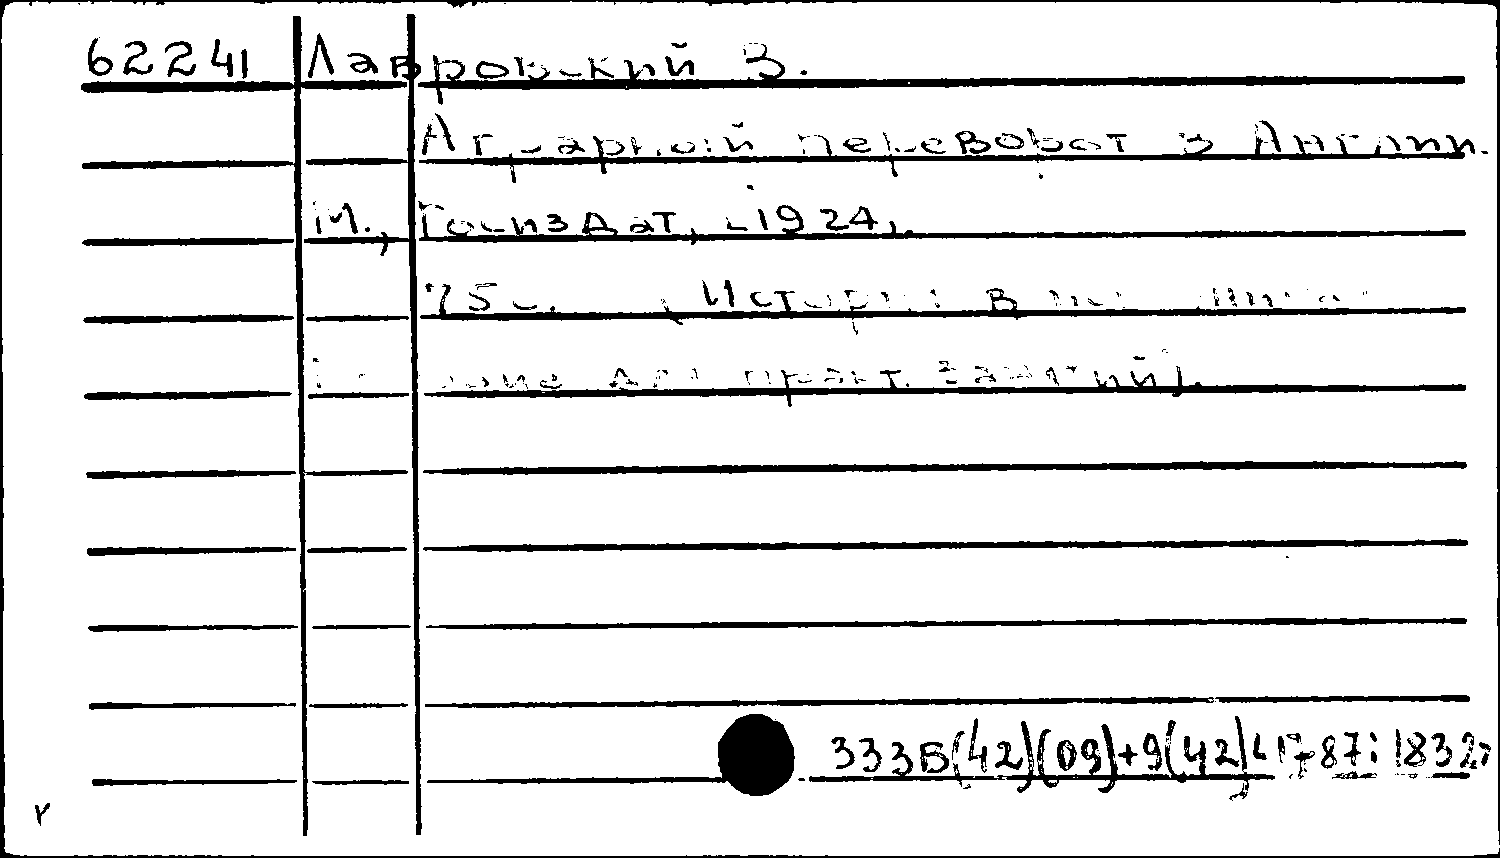 62241 Лавровский В.
Аграрный переворот в Англии.
М., Госиздат, [1924].
75 с. (История в
для практ. занятий).
333Б(42)(09)+9(42)"1787:1832"